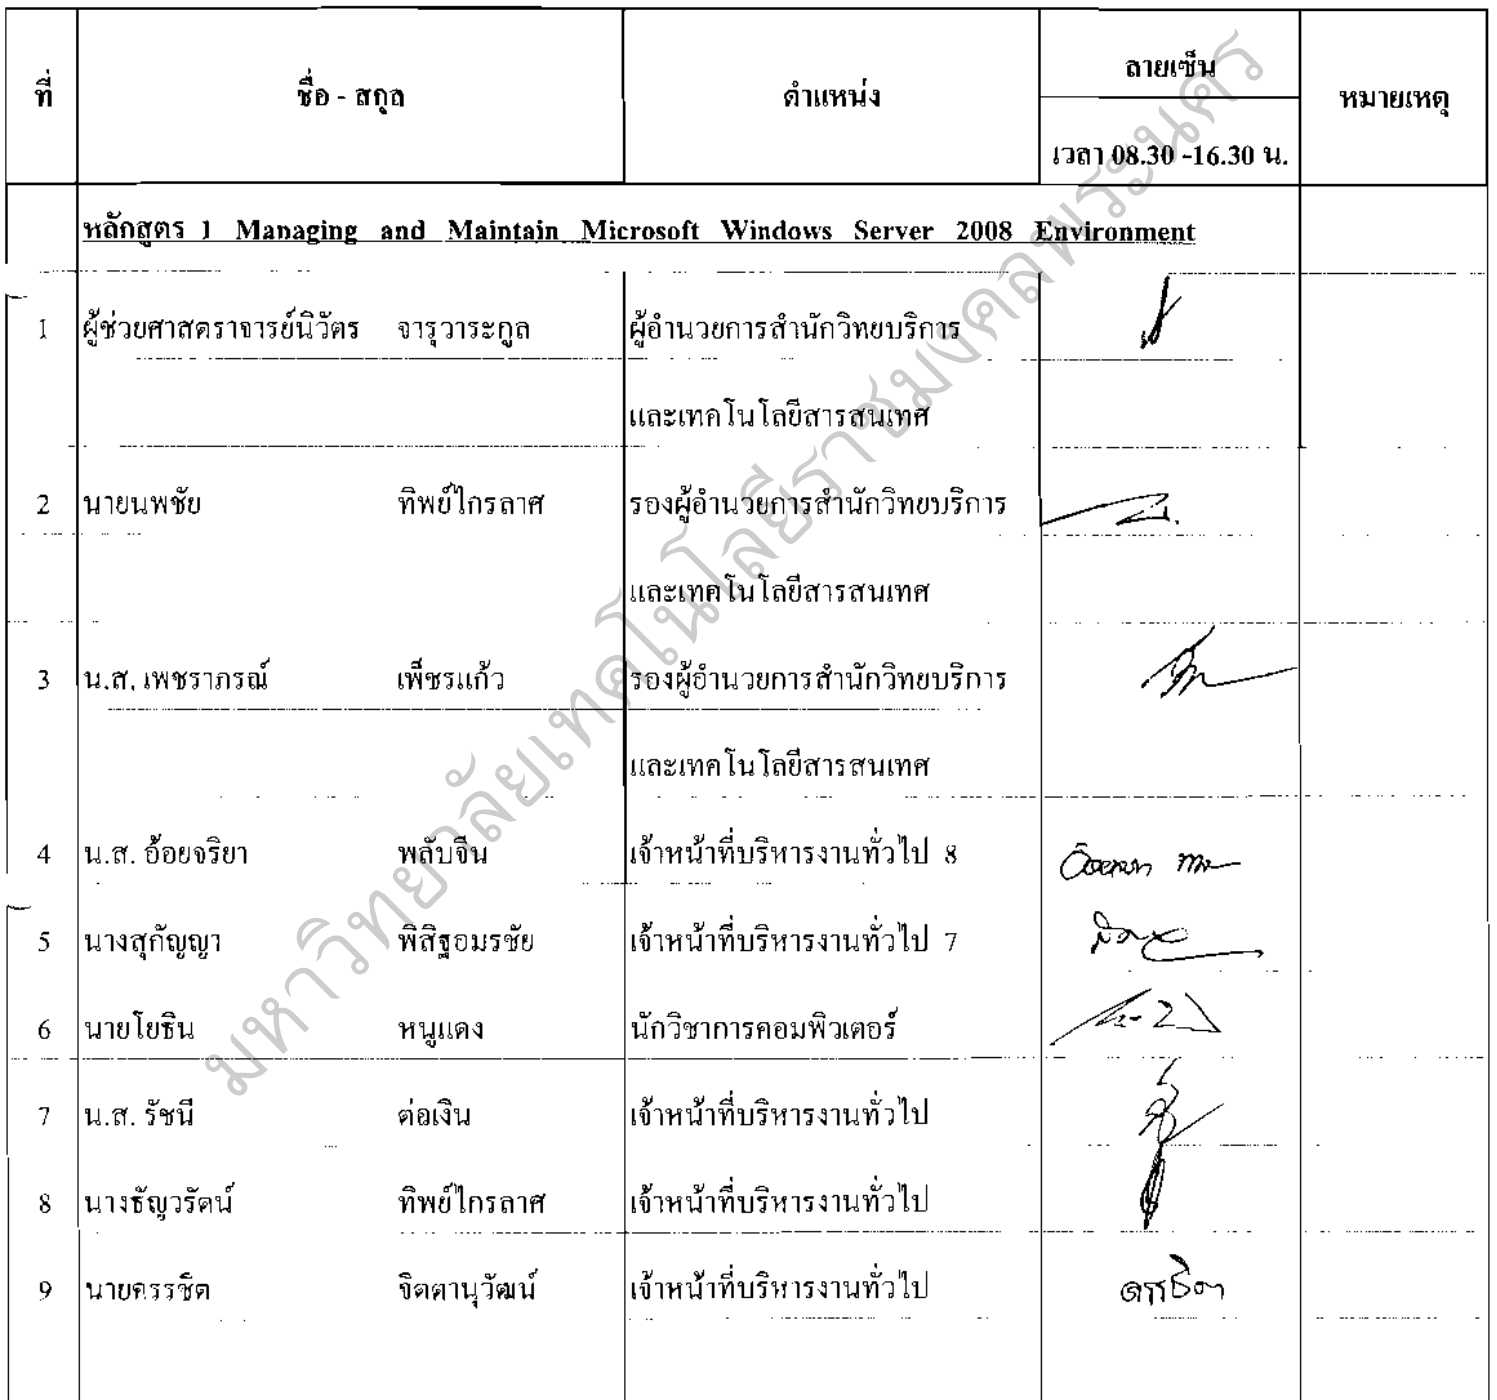 ที่ ชื่อ - สกุล ตำแหน่ง ลายเซ็น หมายเหตุ
เวลา 08.30 -16.30 น.
หลักสูตร 1 Managing and Maintain Microsoft Windows Server 2008 Environment
1 ผู้ช่วยศาสตราจารย์นิวัตร จารุวาระกูล ผู้อำนวยการสำนักวิทยบริการ
และเทคโนโลยีสารสนเทศ
2 นายนพชัย ทิพย์ไกรลาศ รองผู้อำนวยการสำนักวิทยบริการ
และเทคโนโลยีสารสนเทศ
3 น.ส. เพชราภรณ์ เพ็ชรแก้ว รองผู้อำนวยการสำนักวิทยบริการ
และเทคโนโลยีสารสนเทศ
4 น.ส. อ้อยจริยา พลับจีน เจ้าหน้าที่บริหารงานทั่วไป 8
5 นางสุกัญญา พิสิฐอมรชัย เจ้าหน้าที่บริหารงานทั่วไป 7
6 นายโยธิน หนูแดง นักวิชาการคอมพิวเตอร์
7 น.ส. รัชนี ต่อเงิน เจ้าหน้าที่บริหารงานทั่วไป
8 นางธัญวรัตน์ ทิพย์ไกรลาศ เจ้าหน้าที่บริหารงานทั่วไป
9 นายครรชิต จิตตานุวัฒน์ เจ้าหน้าที่บริหารงานทั่วไป
มหาวิทยาลัยเทคโนโลยีราชมงคลพระนคร